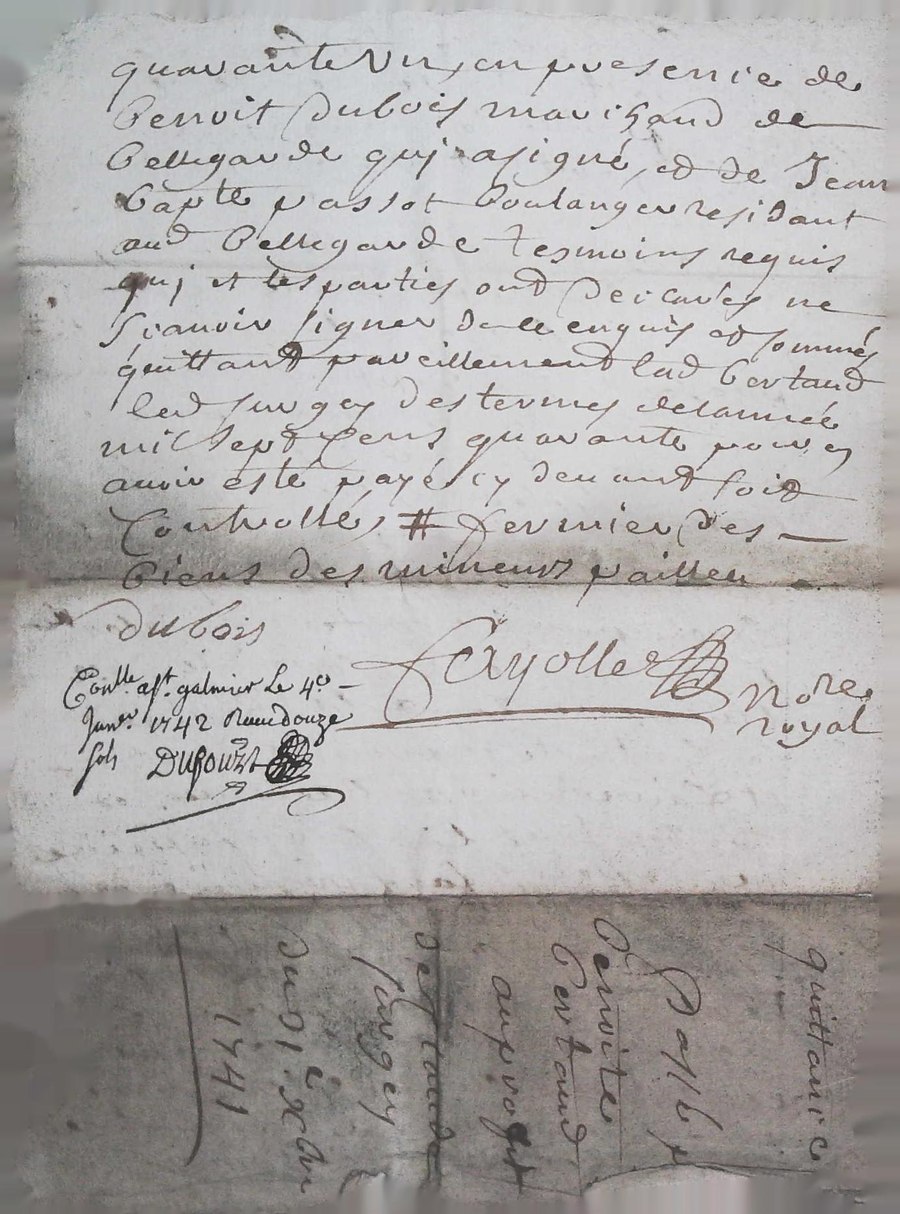 quarante Un, en presence de
benoit Dubois marchand de
bellegarde quj a signé, et de Jean
bapte passot boulanger residant
aud bellegarde tesmoins requis
quj et les parties ont declarés ne
scauoir signer de ce enquis et sommés
quittant pareillement lad bertaud
led surgey des termes de lannée
mil sept cens quarante pour en
auoir esté payé cy deuant soit
Controllé, # fermier des
biens des mineurs pailleu
dubois
Conlle a st. galmier Le 4e
Janer. 1742 Receu douze
sols
Fayolle
Nore
royal
quittance
benoite
bertaud
au profit
de claude
surgey
du 1e xbre
1741